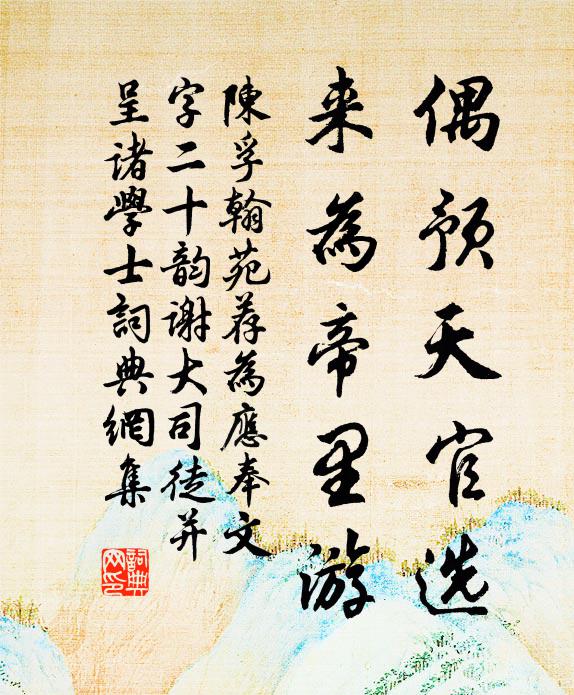 偶预天官选
来為帝里游
陳孚翰苑荐為應奉文
字二十韵谢大司徒并
呈诸學士詞典網集
詞典网印